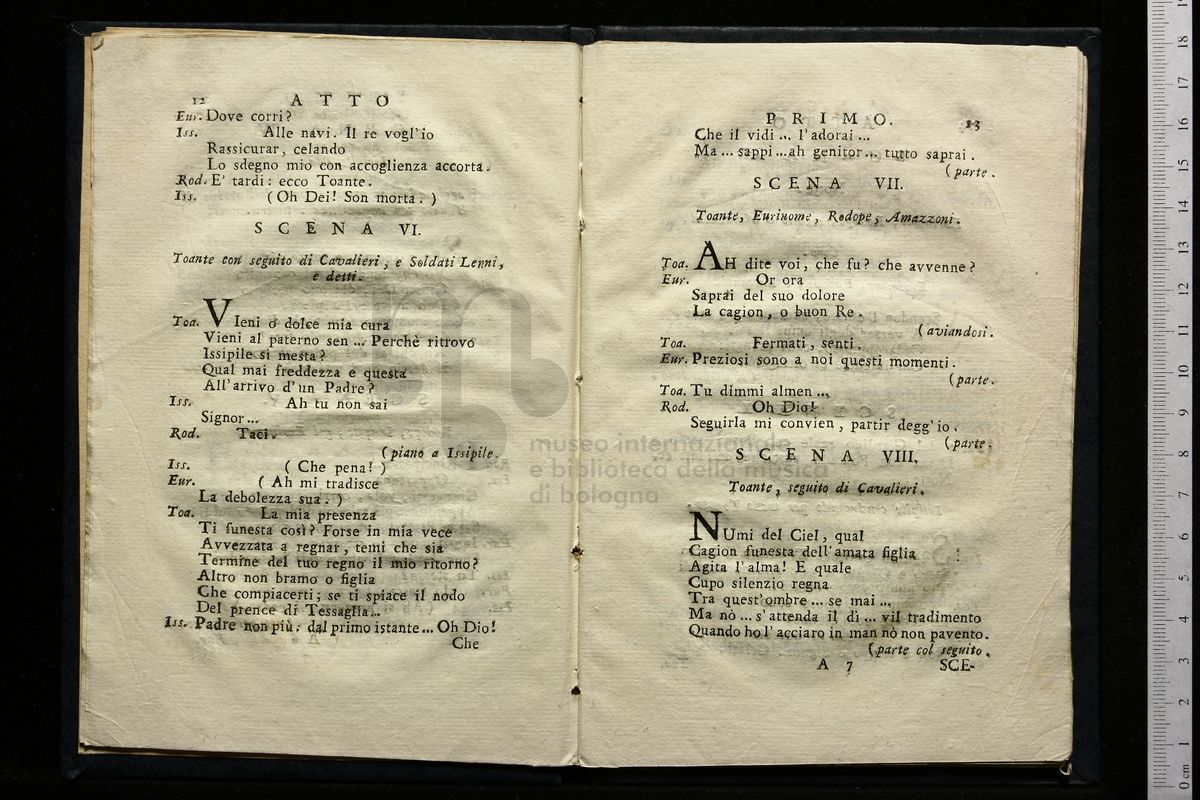 12 ATTO
Eur. Dove corri?
Iss. Alle navi. Il re vogl'io
Rassicurar, celando
Lo sdegno mio con accoglienza accorta.
Rod. E' tardi: ecco Toante.
Iss. (Oh Dei! Son morta.)
SCENA VI.
Toante con seguito di Cavalieri, e Soldati Lenni,
e detti.
Toa. VIeni o dolce mia cura
Vieni al paterno sen ... Perchè ritrovo
Issipile sì mesta?
Qual mai freddezza e questa
All'arrivo d'un Padre?
Iss. Ah tu non sai
Signor ...
Rod. Taci.
(piano a Issipile.
Iss. (Che pena!)
Eur. (Ah mi tradisce
La debolezza sua.)
Toa. La mia presenza
Ti funesta così? Forse in mia vece
Avvezzata a regnar, temi che sia
Termine del tuo regno il mio ritorno?
Altro non bramo o figlia
Che compiacerti; se ti spiace il nodo
Del prence di Tessaglia..
Iss. Padre non più: dal primo istante ... Oh Dio!
Che
PRIMO. 13
Che il vidi ... l'adorai ...
Ma ... sappi ... ah genitor ... tutto saprai.
(parte.
SCENA VII.
Toante, Eurinome, Rodope, Amazzoni.
Toa. AH dite voi, che fu? che avvenne?
Eur. Or ora
Saprai del suo dolore
La cagion, o buon Re.
(aviandosi.
Toa. Fermati, senti.
Eur. Preziosi sono a noi questi momenti.
(parte.
Toa. Tu dimmi almen ...
Rod. Oh Dio!
Seguirla mi convien, partir degg'io.
(parte.
SCENA VIII.
Toante, seguito di Cavalieri.
NUmi del Ciel, qual
Cagion funesta dell'amata figlia
Agita l'alma! E quale
Cupo silenzio regna
Tra quest'ombre ... se mai ...
Ma nò ... s'attenda il dì ... vil tradimento
Quando ho l'acciaro in man nò non pavento.
(parte col seguito.
A 7 SCE-
museo internazionale
e biblioteca della musica
di bologna